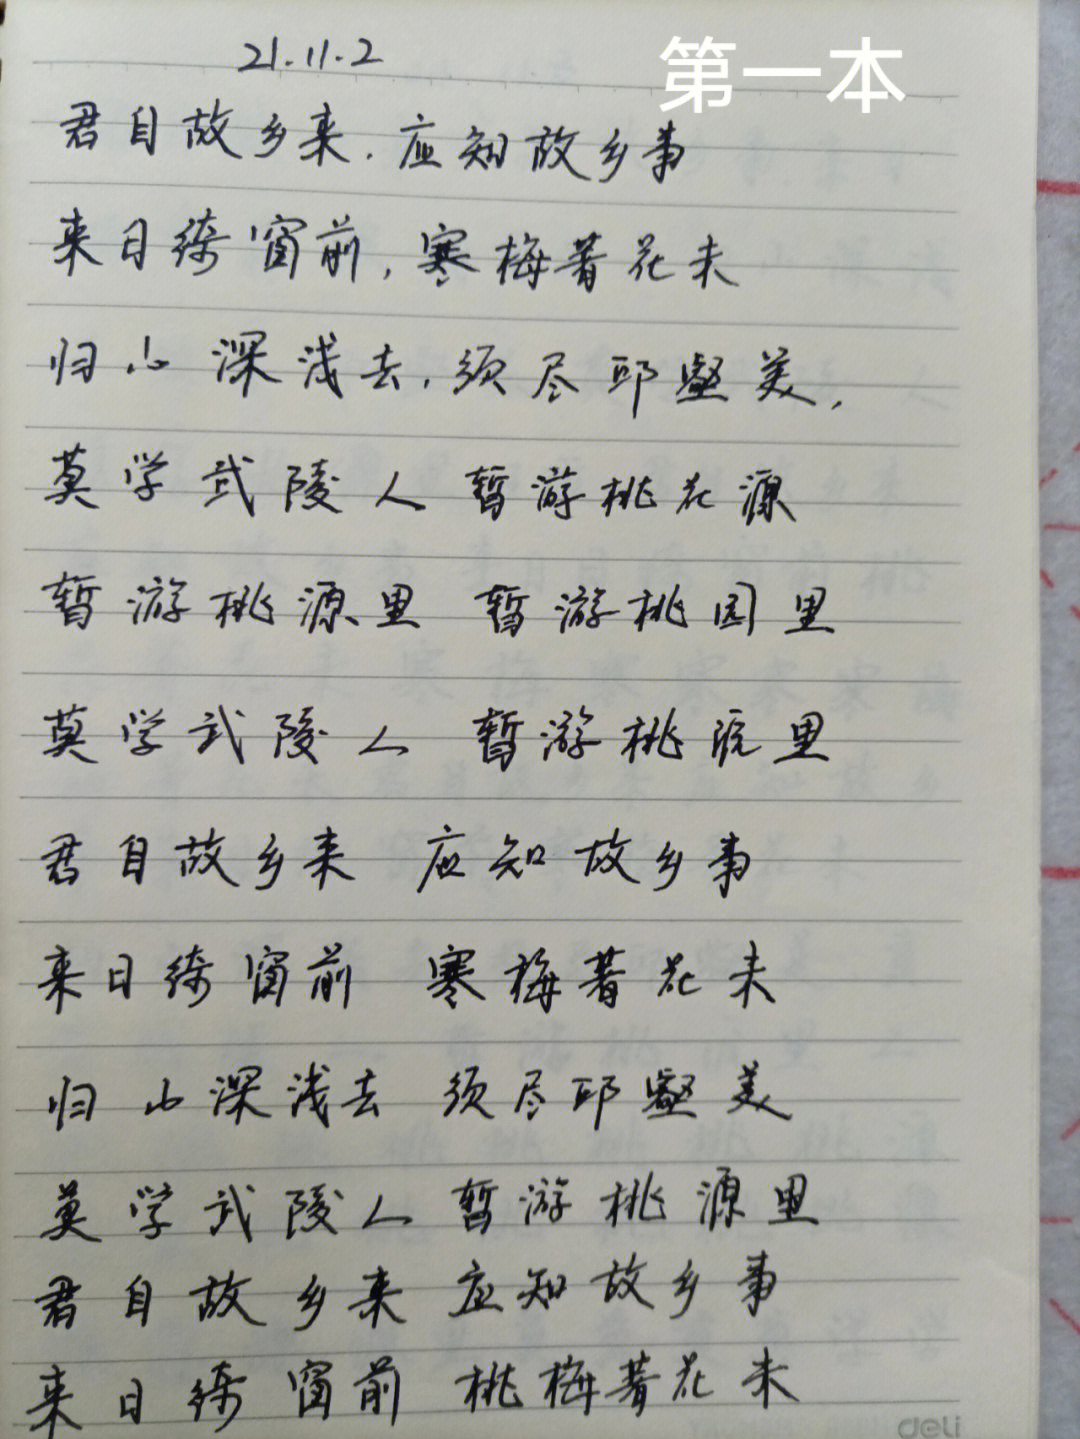 第一本
21.11.2
君自故乡来.应知故乡事
来日绮窗前,寒梅著花未
归心深浅去,须尽邱壑美,
莫学武陵人 暂游桃花源
暂游桃源里 暂游桃园里
莫学武陵人 暂游桃源里
君自故乡来 应知故乡事
来日绮窗前 寒梅著花未
归心深浅去 须尽邱壑美
莫学武陵人 暂游桃源里
君自故乡来 应知故乡事
来日绮窗前 桃梅著花未
deli